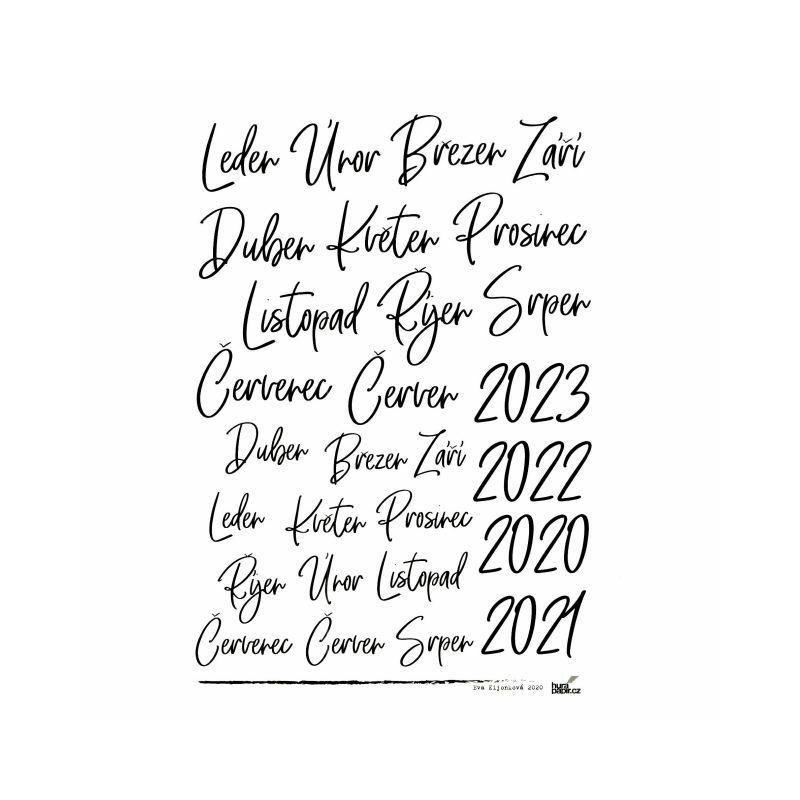 Leden Únor Březen Září
Duben Květen Prosinec
Listopad Říjen Srpen
Červenec Červen 2023
Duben Březen Září 2022
Leden Květen Prosinec 2020
Říjen Únor Listopad
Červenec Červen Srpen 2021
Eva Eijonková 2020
hurá papír.cz